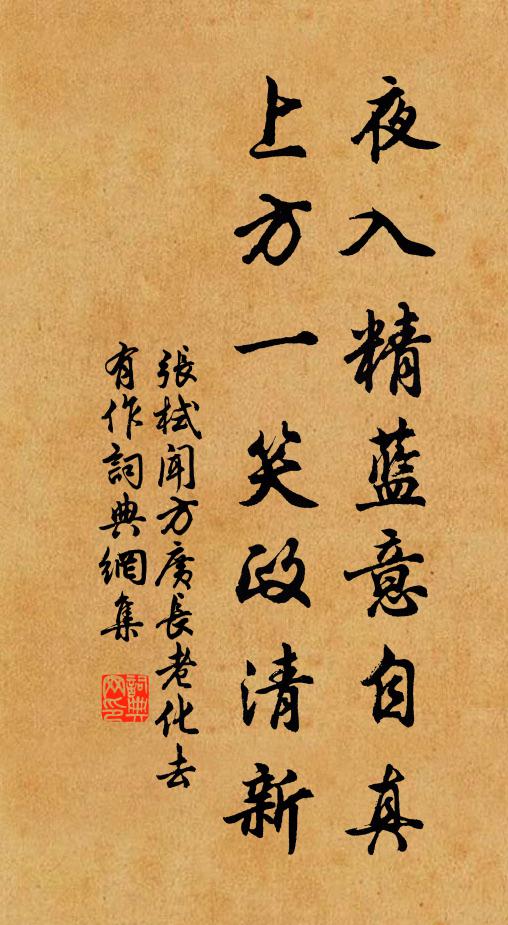 夜入精藍意自真
上方一笑政清新
張栻聞方廣長老化去
有作詞典網集
詞典網印